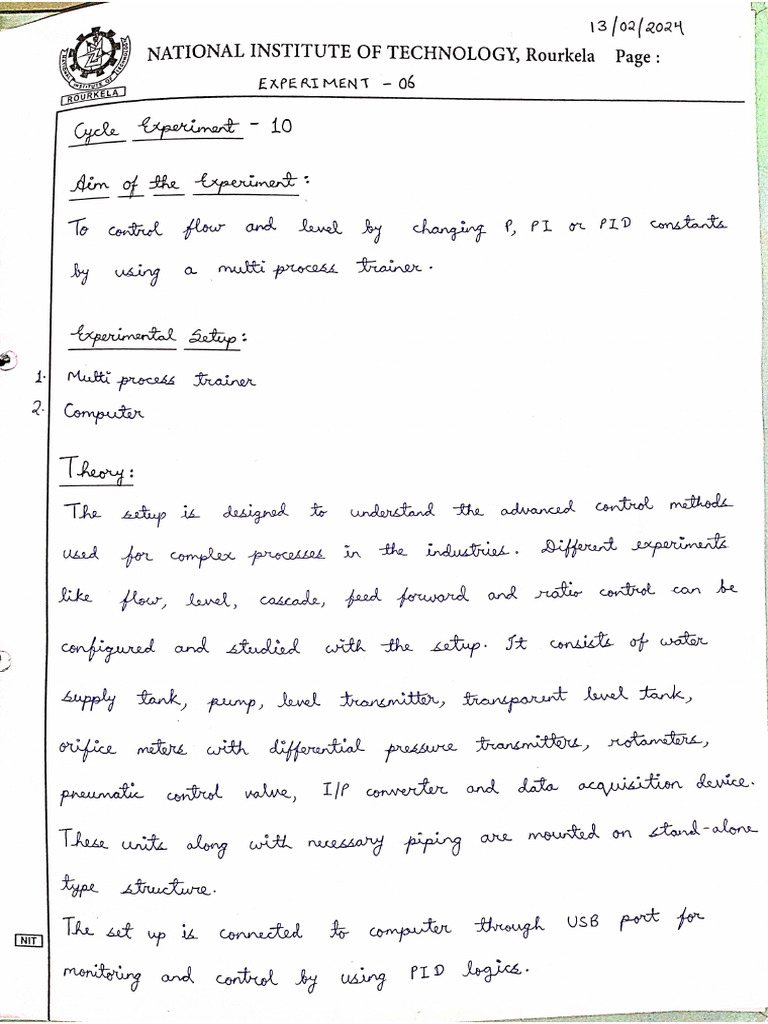 13/02/2024
NATIONAL INSTITUTE OF TECHNOLOGY, Rourkela Page :
NATIONAL INSTITUTE OF TECHNOLOGY
ROURKELA
EXPERIMENT - 06
Cycle Experiment - 10
Aim of the Experiment:
To control flow and level by changing P, PI or PID constants
by using a multi process trainer.
Experimental Setup:
1. Multi process trainer
2. Computer
Theory:
The setup is designed to understand the advanced control methods
used for complex processes in the industries. Different experiments
like flow, level, cascade, feed forward and ratio control can be
configured and studied with the setup. It consists of water
supply tank, pump, level transmitter, transparent level tank,
orifice meters with differential pressure transmitters, rotameters,
pneumatic control valve, I/P converter and data acquisition device.
These units along with necessary piping are mounted on stand-alone
type structure.
The set up is connected to computer through USB port for
NIT
monitoring and control by using PID logics.